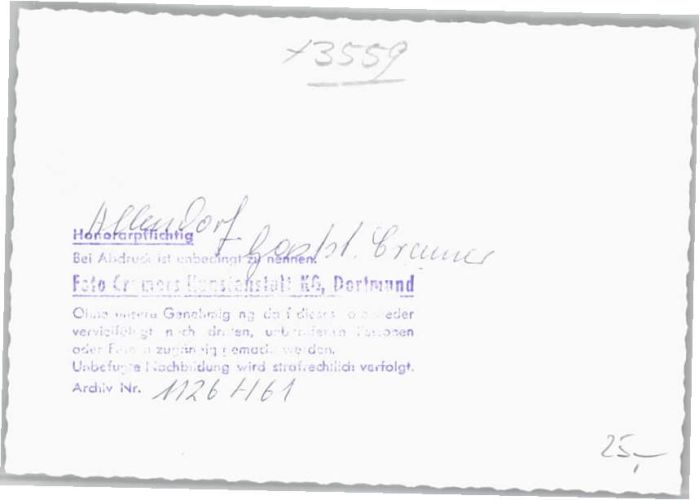 +3559
Allendorf
Gastst. Cramer
Honorarpflichtig
Bei Abdruck ist unbedingt zu nennen:
Foto Cramers Kunstanstalt KG, Dortmund
Ohne unsere Genehmigung darf dieses Foto weder
vervielfältigt noch dritten, unbefugten Personen
oder Firmen zugängig gemacht werden.
Unbefugte Nachbildung wird strafrechtlich verfolgt.
Archiv Nr. 1126 H61
25,-